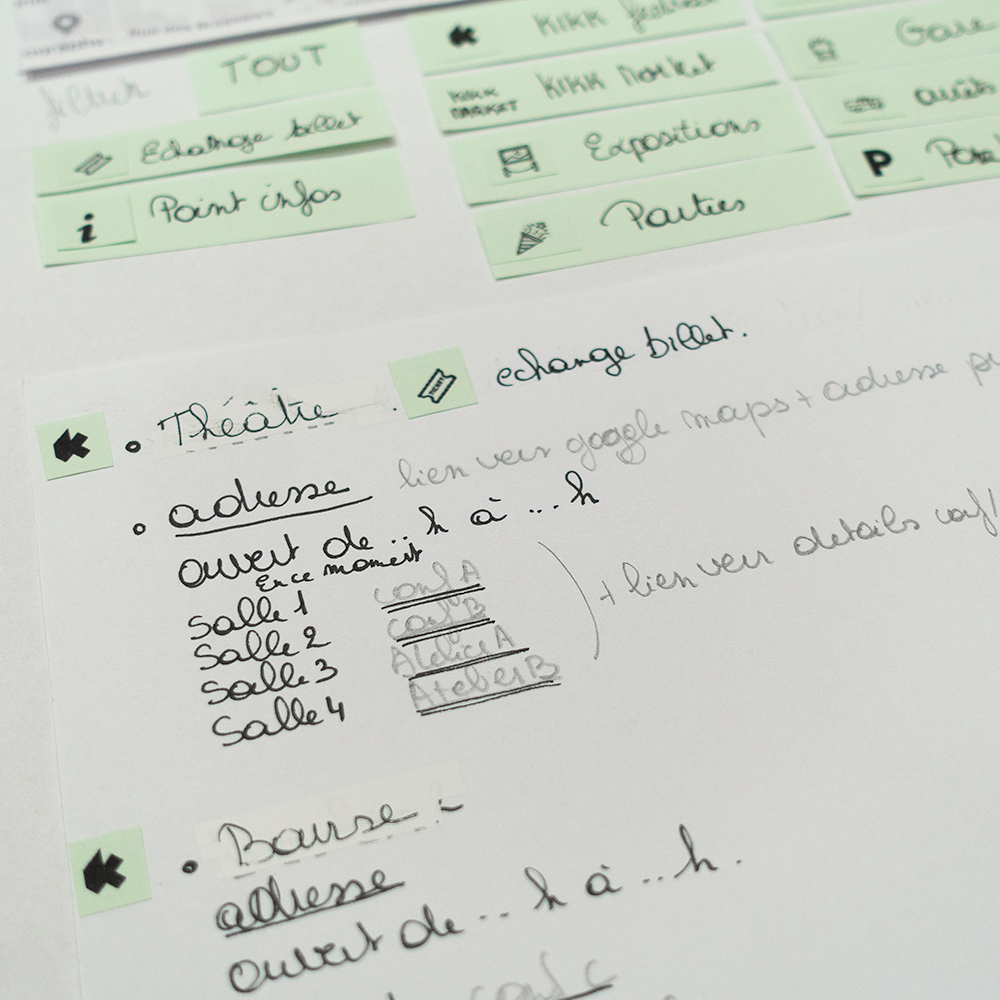 filtrer TOUT
Echange billet
i Point infos
KIKK festival
KIKK MARKET KIKK Market
Expositions
Parties
Gare
arrêts
P
Théâtre
echange billet.
adresse lien vers google maps + adresse
ouvert de ... h à ... h
En ce moment
Salle 1 conf A
Salle 2 conf B
Salle 3 Atelier A
Salle 4 Atelier B
+ lien vers details conf/
Bourse :
adresse
ouvert de ... h à ... h.
conf C